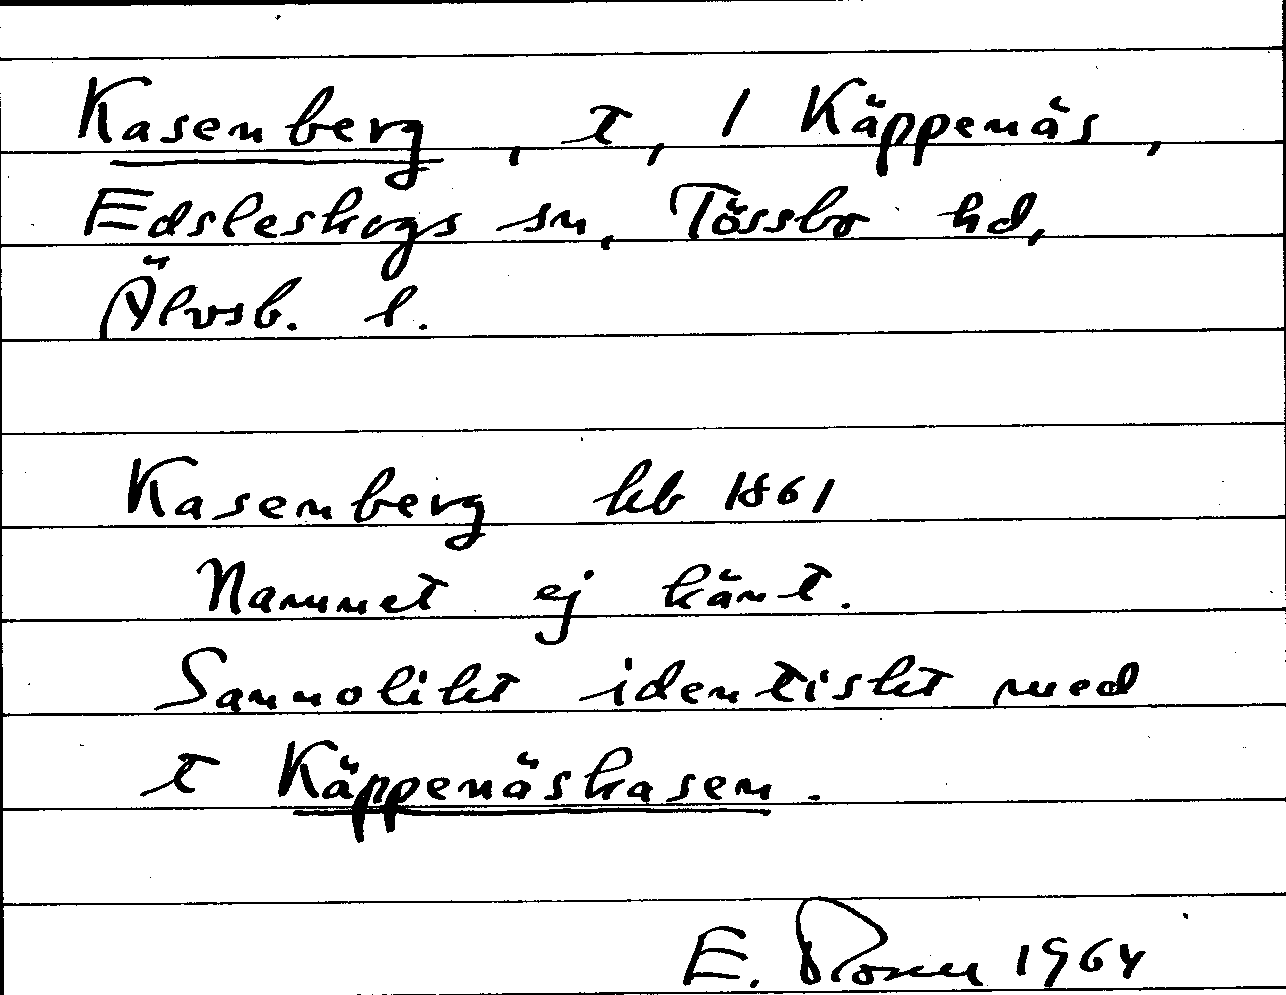 Kasenberg, t, 1 Käppenäs,
Edsleskogs sn, Tössbo hd,
Älvsb. l.
Kasenberg hb 1861
Namnet ej känt.
Sannolikt identiskt med
t Käppenäskasen.
E. Rosell 1964